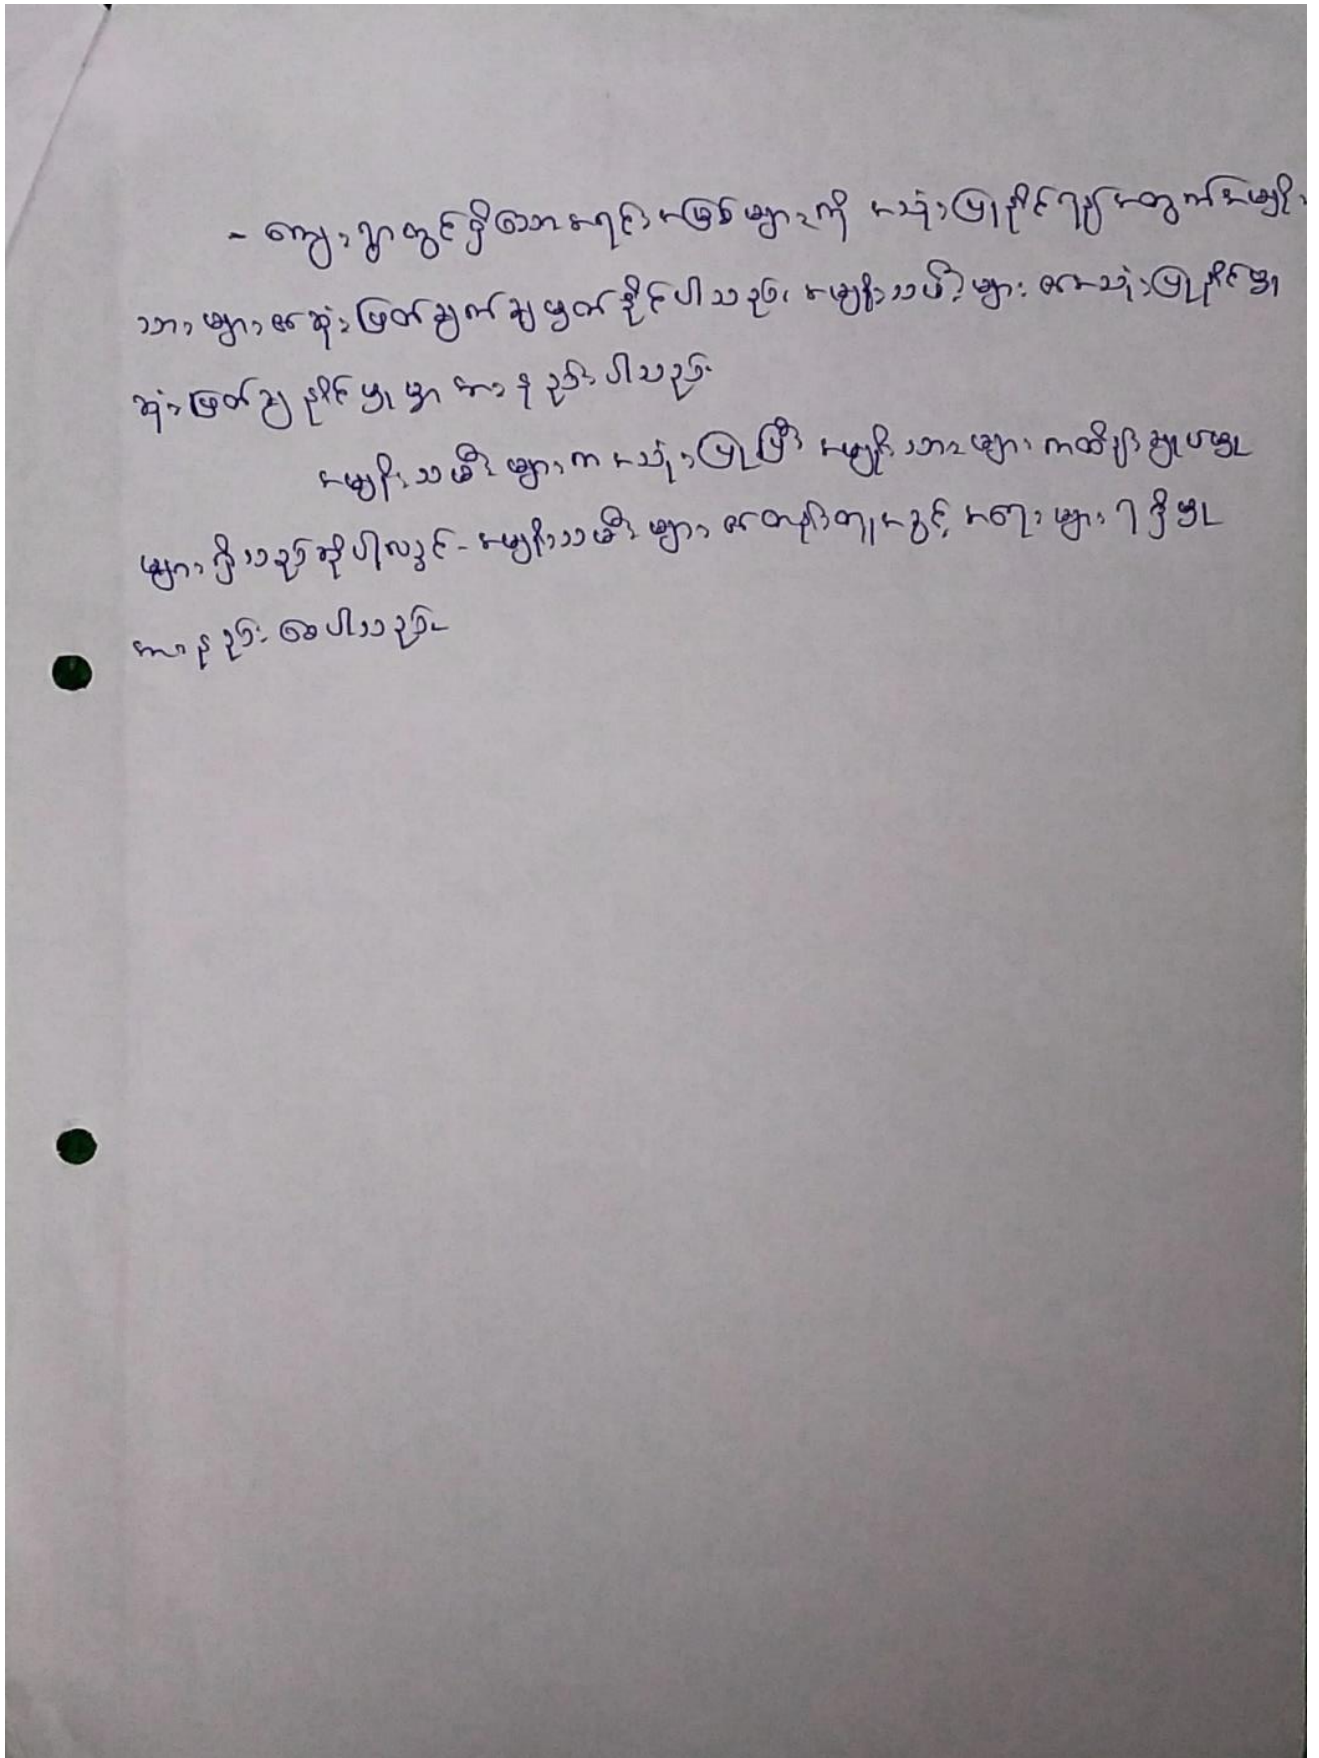 - ကျေးရွာတွင်ရှိသောအရင်းအမြစ်များကို အသုံးပြုနိုင်ရန်အတွက်အမျိုး
သားများကဆုံးဖြတ်ချက်ချမှတ်နိုင်ပါသည်၊ အမျိုးသမီးများ အသုံးပြုနိုင်မှု
ဆုံးဖြတ်ချနိုင်မှုမှာ အားနည်းပါသည်။
အမျိုးသမီးများက အသုံးပြုပြီး အမျိုးသားများက ထိန်းချုပ်မှု
များရှိသည်ဆိုပါလျှင် - အမျိုးသမီးများ တန်းတူအခွင့်အရေးများရရှိမှု
အားနည်းစေပါသည်။